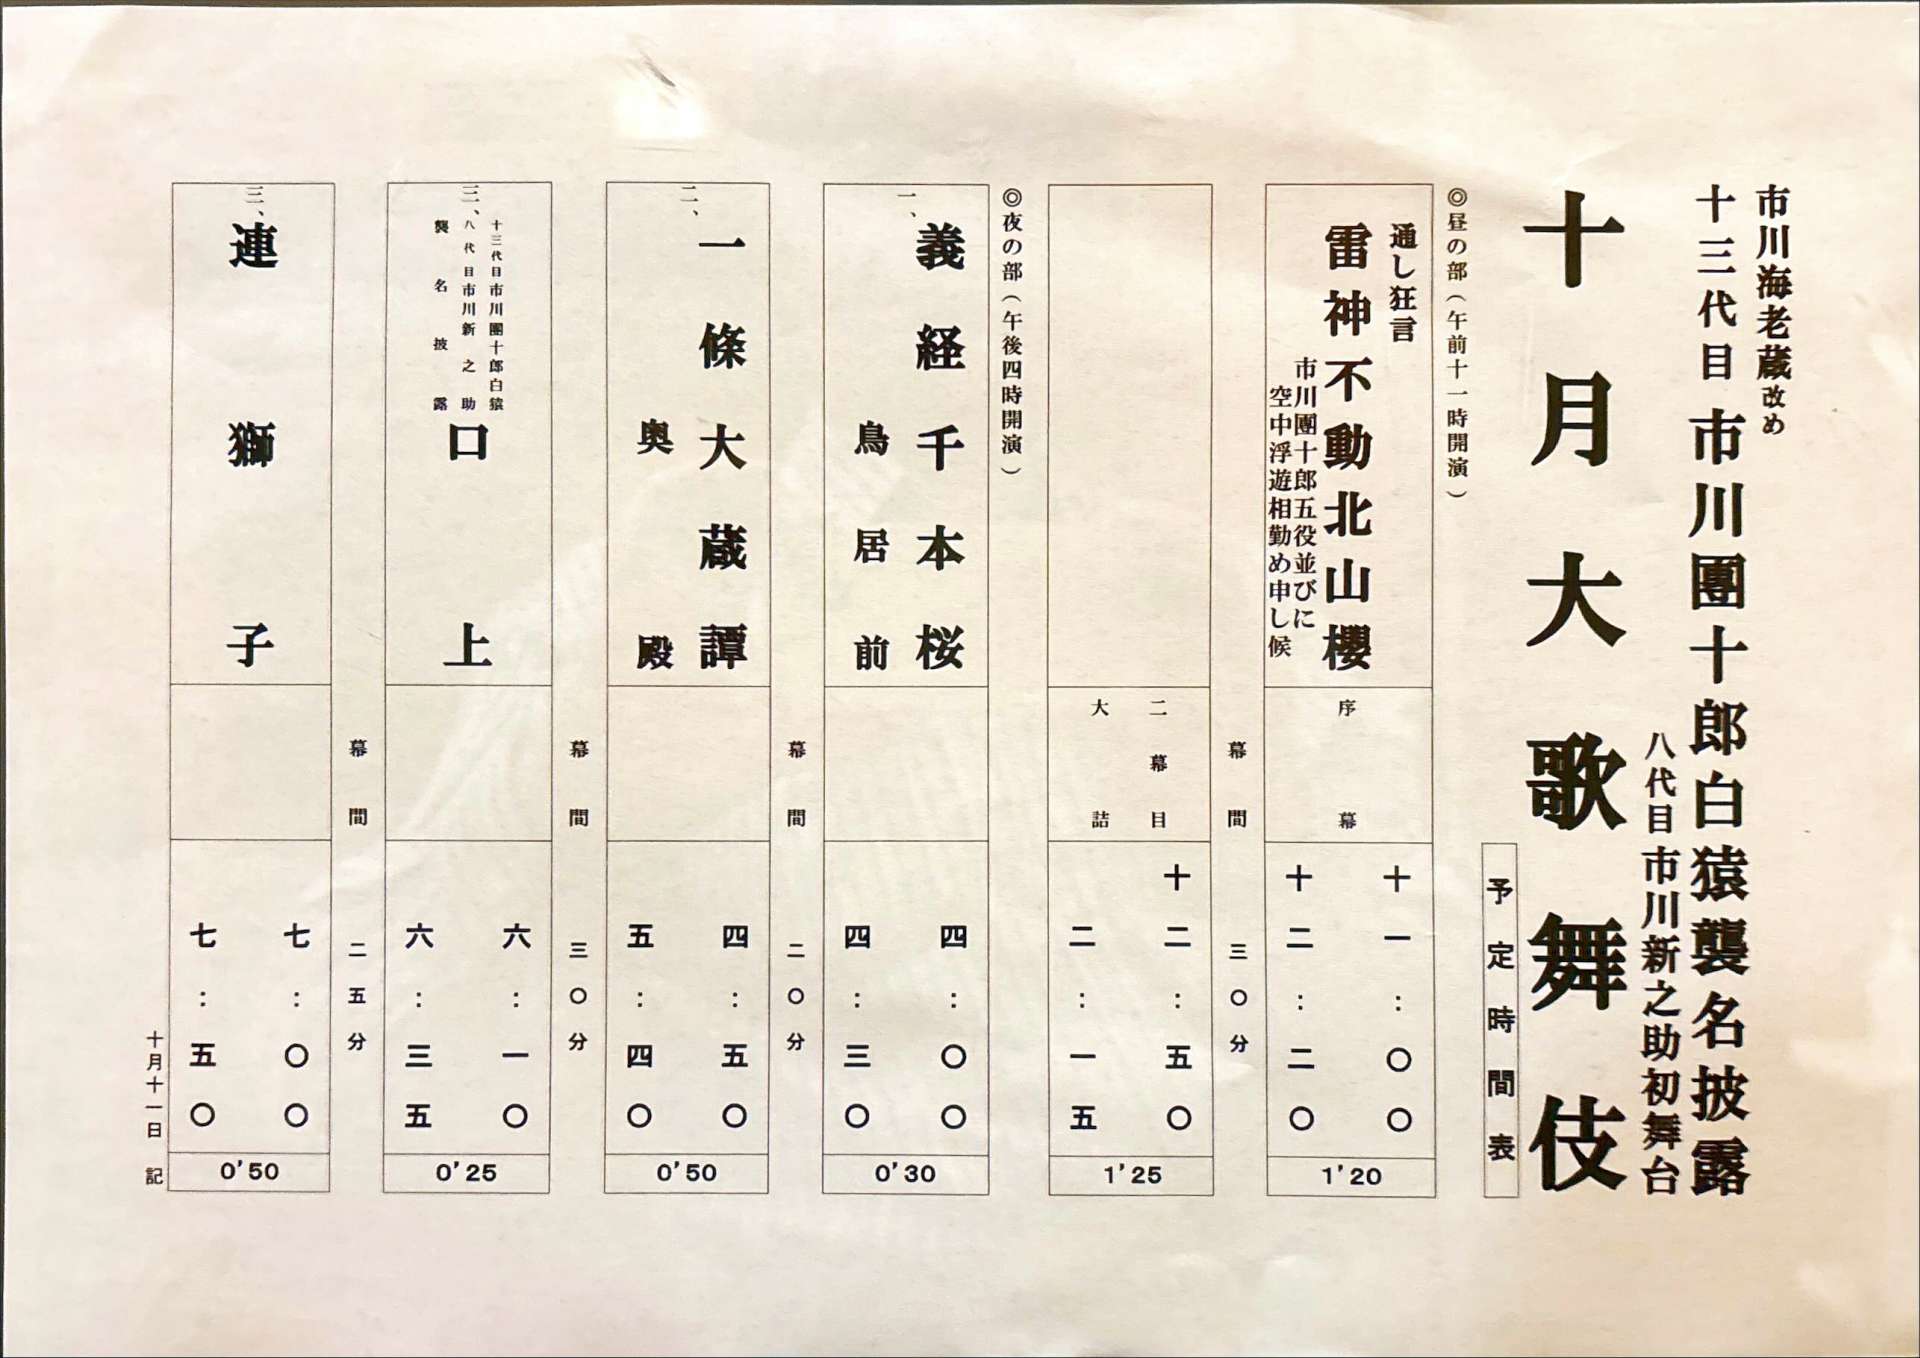 市川海老蔵改め
十三代目市川團十郎白猿襲名披露
八代目市川新之助初舞台
十月大歌舞伎
予定時間表
◎昼の部（午前十一時開演）
通し狂言
雷神不動北山櫻
市川團十郎五役並びに
空中浮遊相勤め申し候
序幕
十一:〇〇
十二:二〇
1’20
幕間 三〇分
二幕目
大詰
十二:五〇
二:一五
1’25
◎夜の部（午後四時開演）
一、
義経千本桜
鳥居前
四:〇〇
四:三〇
0’30
幕間 二〇分
二、
一條大蔵譚
奥殿
四:五〇
五:四〇
0’50
幕間 三〇分
三、
十三代目市川團十郎白猿
八代目市川新之助
襲名披露
口上
六:一〇
六:三五
0’25
幕間 二五分
三、
連獅子
七:〇〇
七:五〇
0’50
十月十一日 記